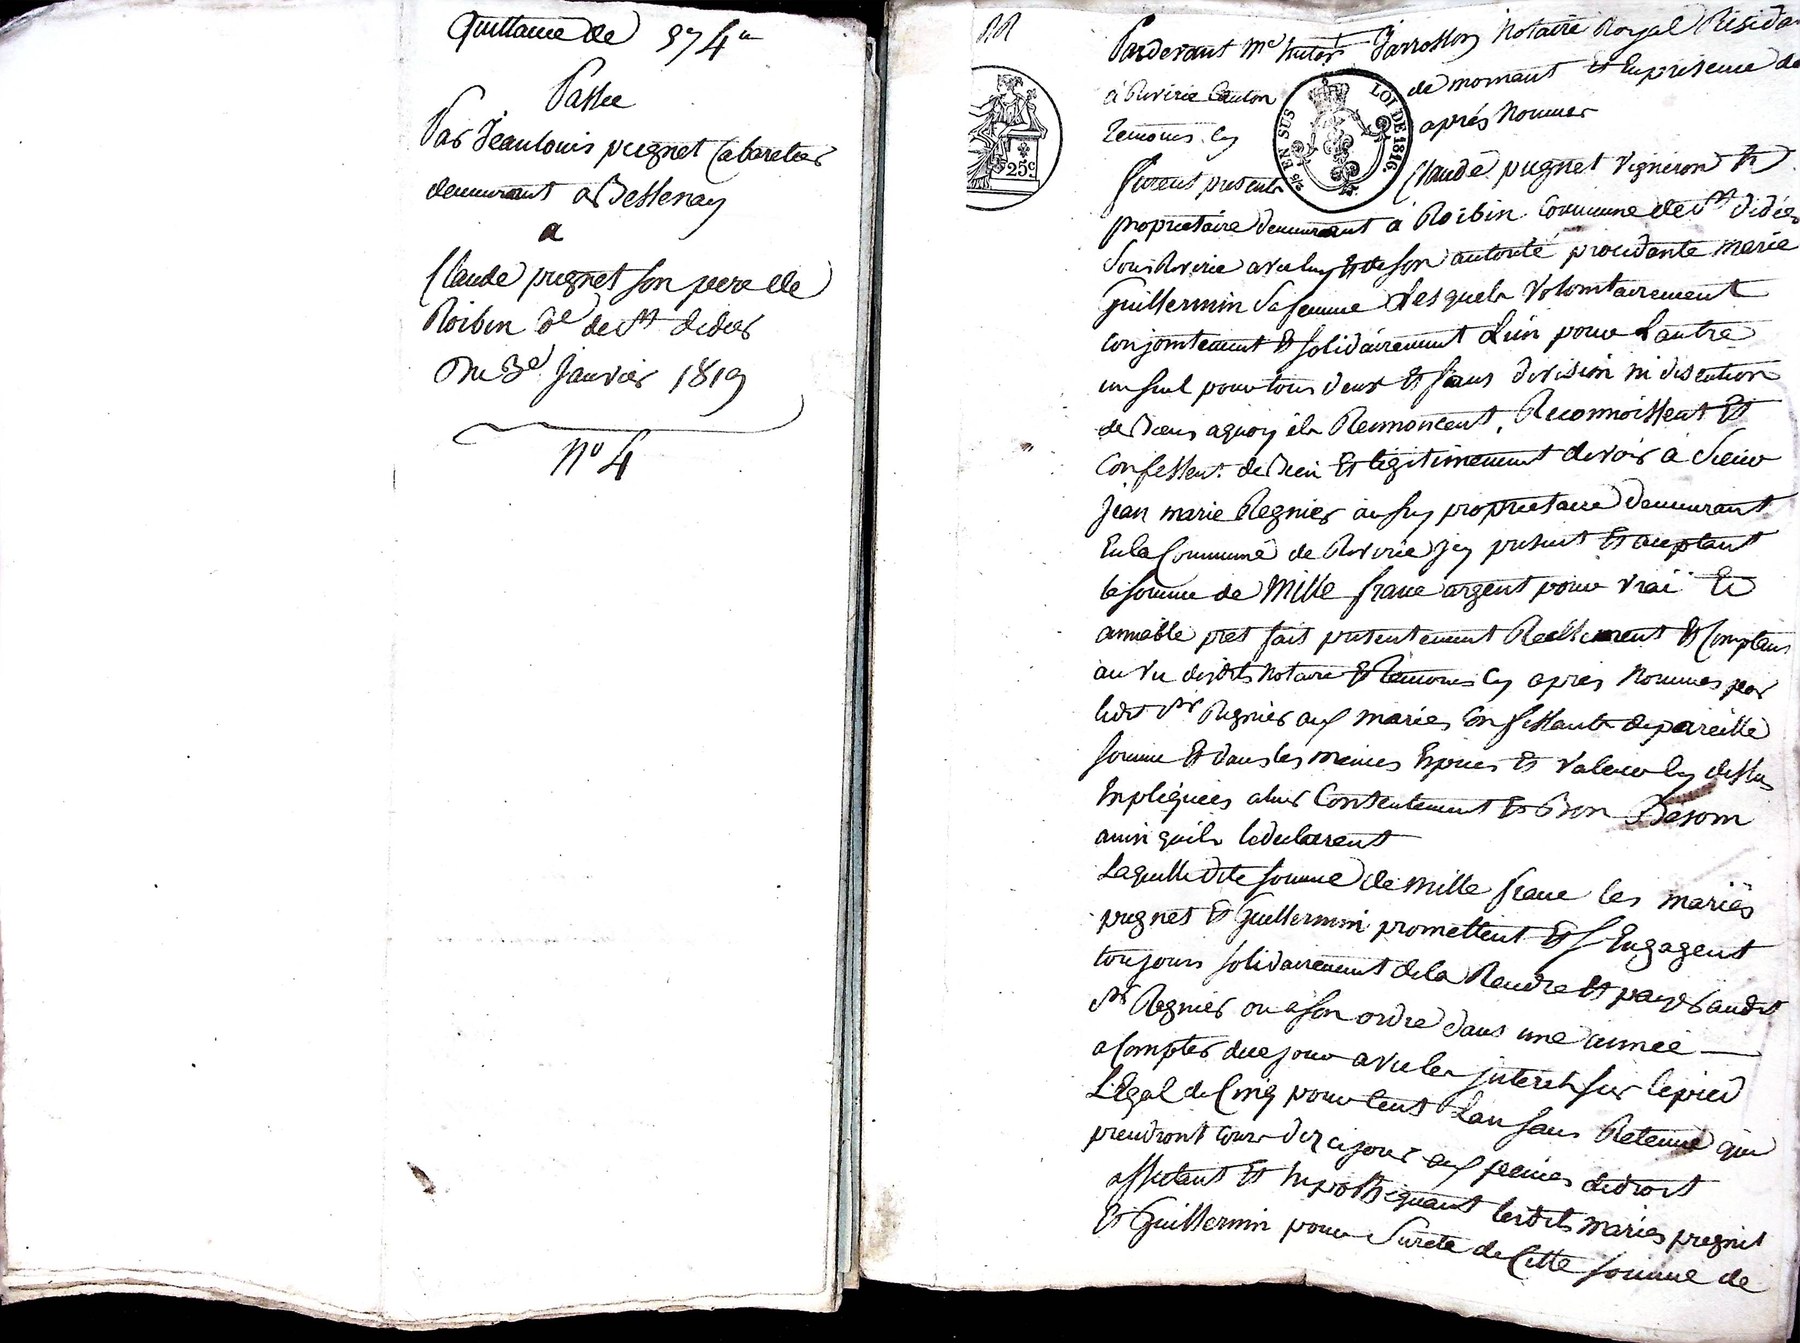 Quittance de 374 #
Passee
Par Jeanlouis pugnet Cabaretier
demeurant a Bessenay
a
Claude pugnet son pere de
Roibin de St didier
Du 3e Janvier 1819
No 4
Pardevant Me Jarrosson Notaire Royal Residant
à Riverie Canton de mornant Et En presence de
temoins cy après Nommes
EN SUS
LOI DE 1816.
25c
furent presents Claude pugnet vigneron Et
proprietaire demeurant à Roibin Commune de St didier
Sous Riverie avec luy Et de son autorité procedante marie
Guillermin sa femme Lesquels Volontairement
conjointement Et solidairement L'un pour L'autre
un seul pour tous deux Et sans division ni discution
de Biens aquoy ils Renoncent, Reconnoissent Et
Confessent de Bien Et legitimement devoir à Sieur
Jean marie Regnier aussy proprietaire demeurant
En la Commune de Riverie jcy present Et aceptant
la somme de Mille franc argent pour vrai Et
amiable pret fait presentement Reellement Et Comptant
au vu desdits Notaire Et temoins cy après Nommes par
ledit Sr Regnier aux maries Confessants de pareille
somme Et dans les memes Especes Et valeur cy dessus
Expliquées a leur Contentement Et Bon Besoin
ainsi qu'ils le declarent
Laquelle dite somme de Mille franc les mariés
pugnet Et Guillermin promettent Et s'Engagent
toujours solidairement de la Rendre Et payer audit
Sr Regnier ou a son ordre dans une année
a Compter de ce jour avec les jnterets sur le pied
Légal de Cinq pour Cent L'an sans Retenue qui
prendront cours dez ce jour aux peines de droit
affectant Et hypothequant lesdits maries pugnet
Et Guillermin pour Sureté de Cette somme de